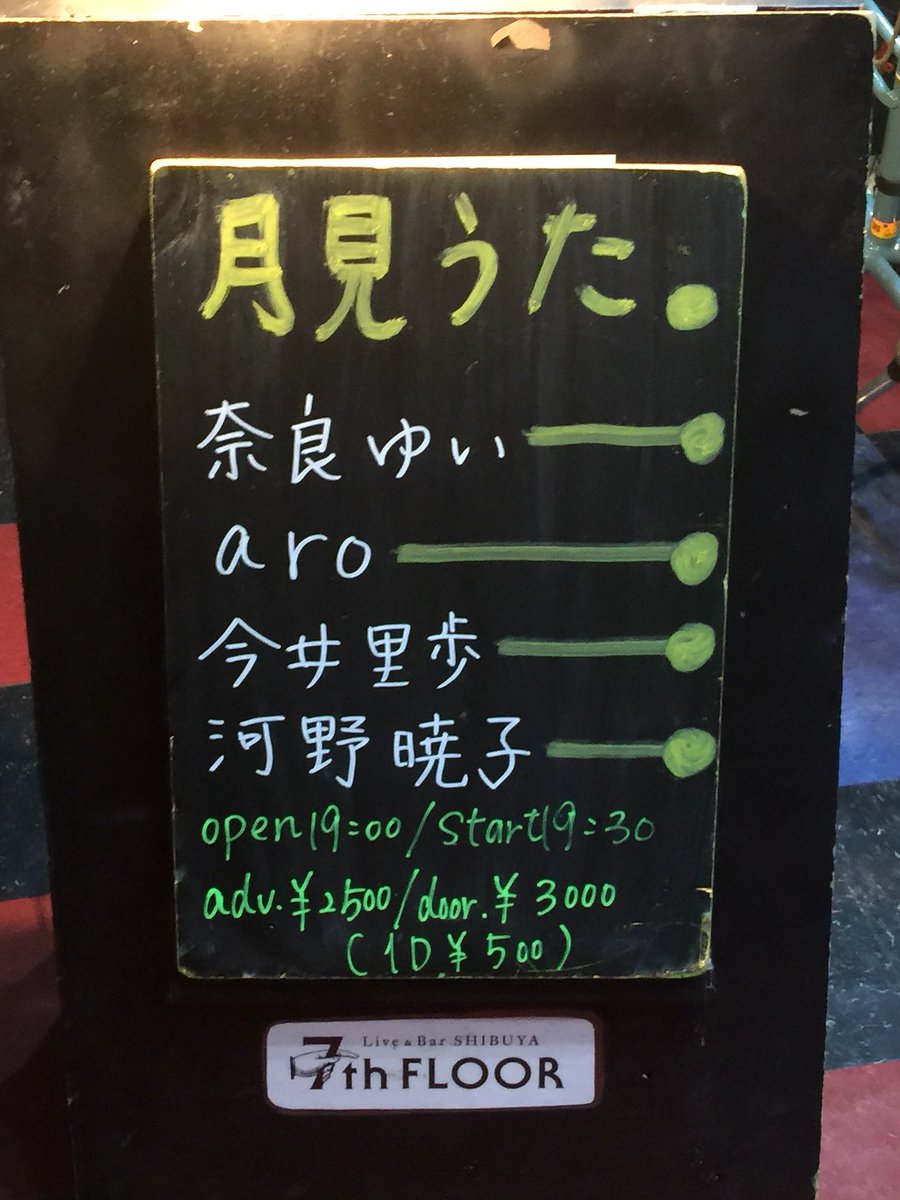 月見うた。
奈良ゆい
aro
今井里歩
河野暁子
open19:00/Start19:30
adv.¥2500/door.¥3000
(1D¥500)
Live & Bar SHIBUYA
7th FLOOR